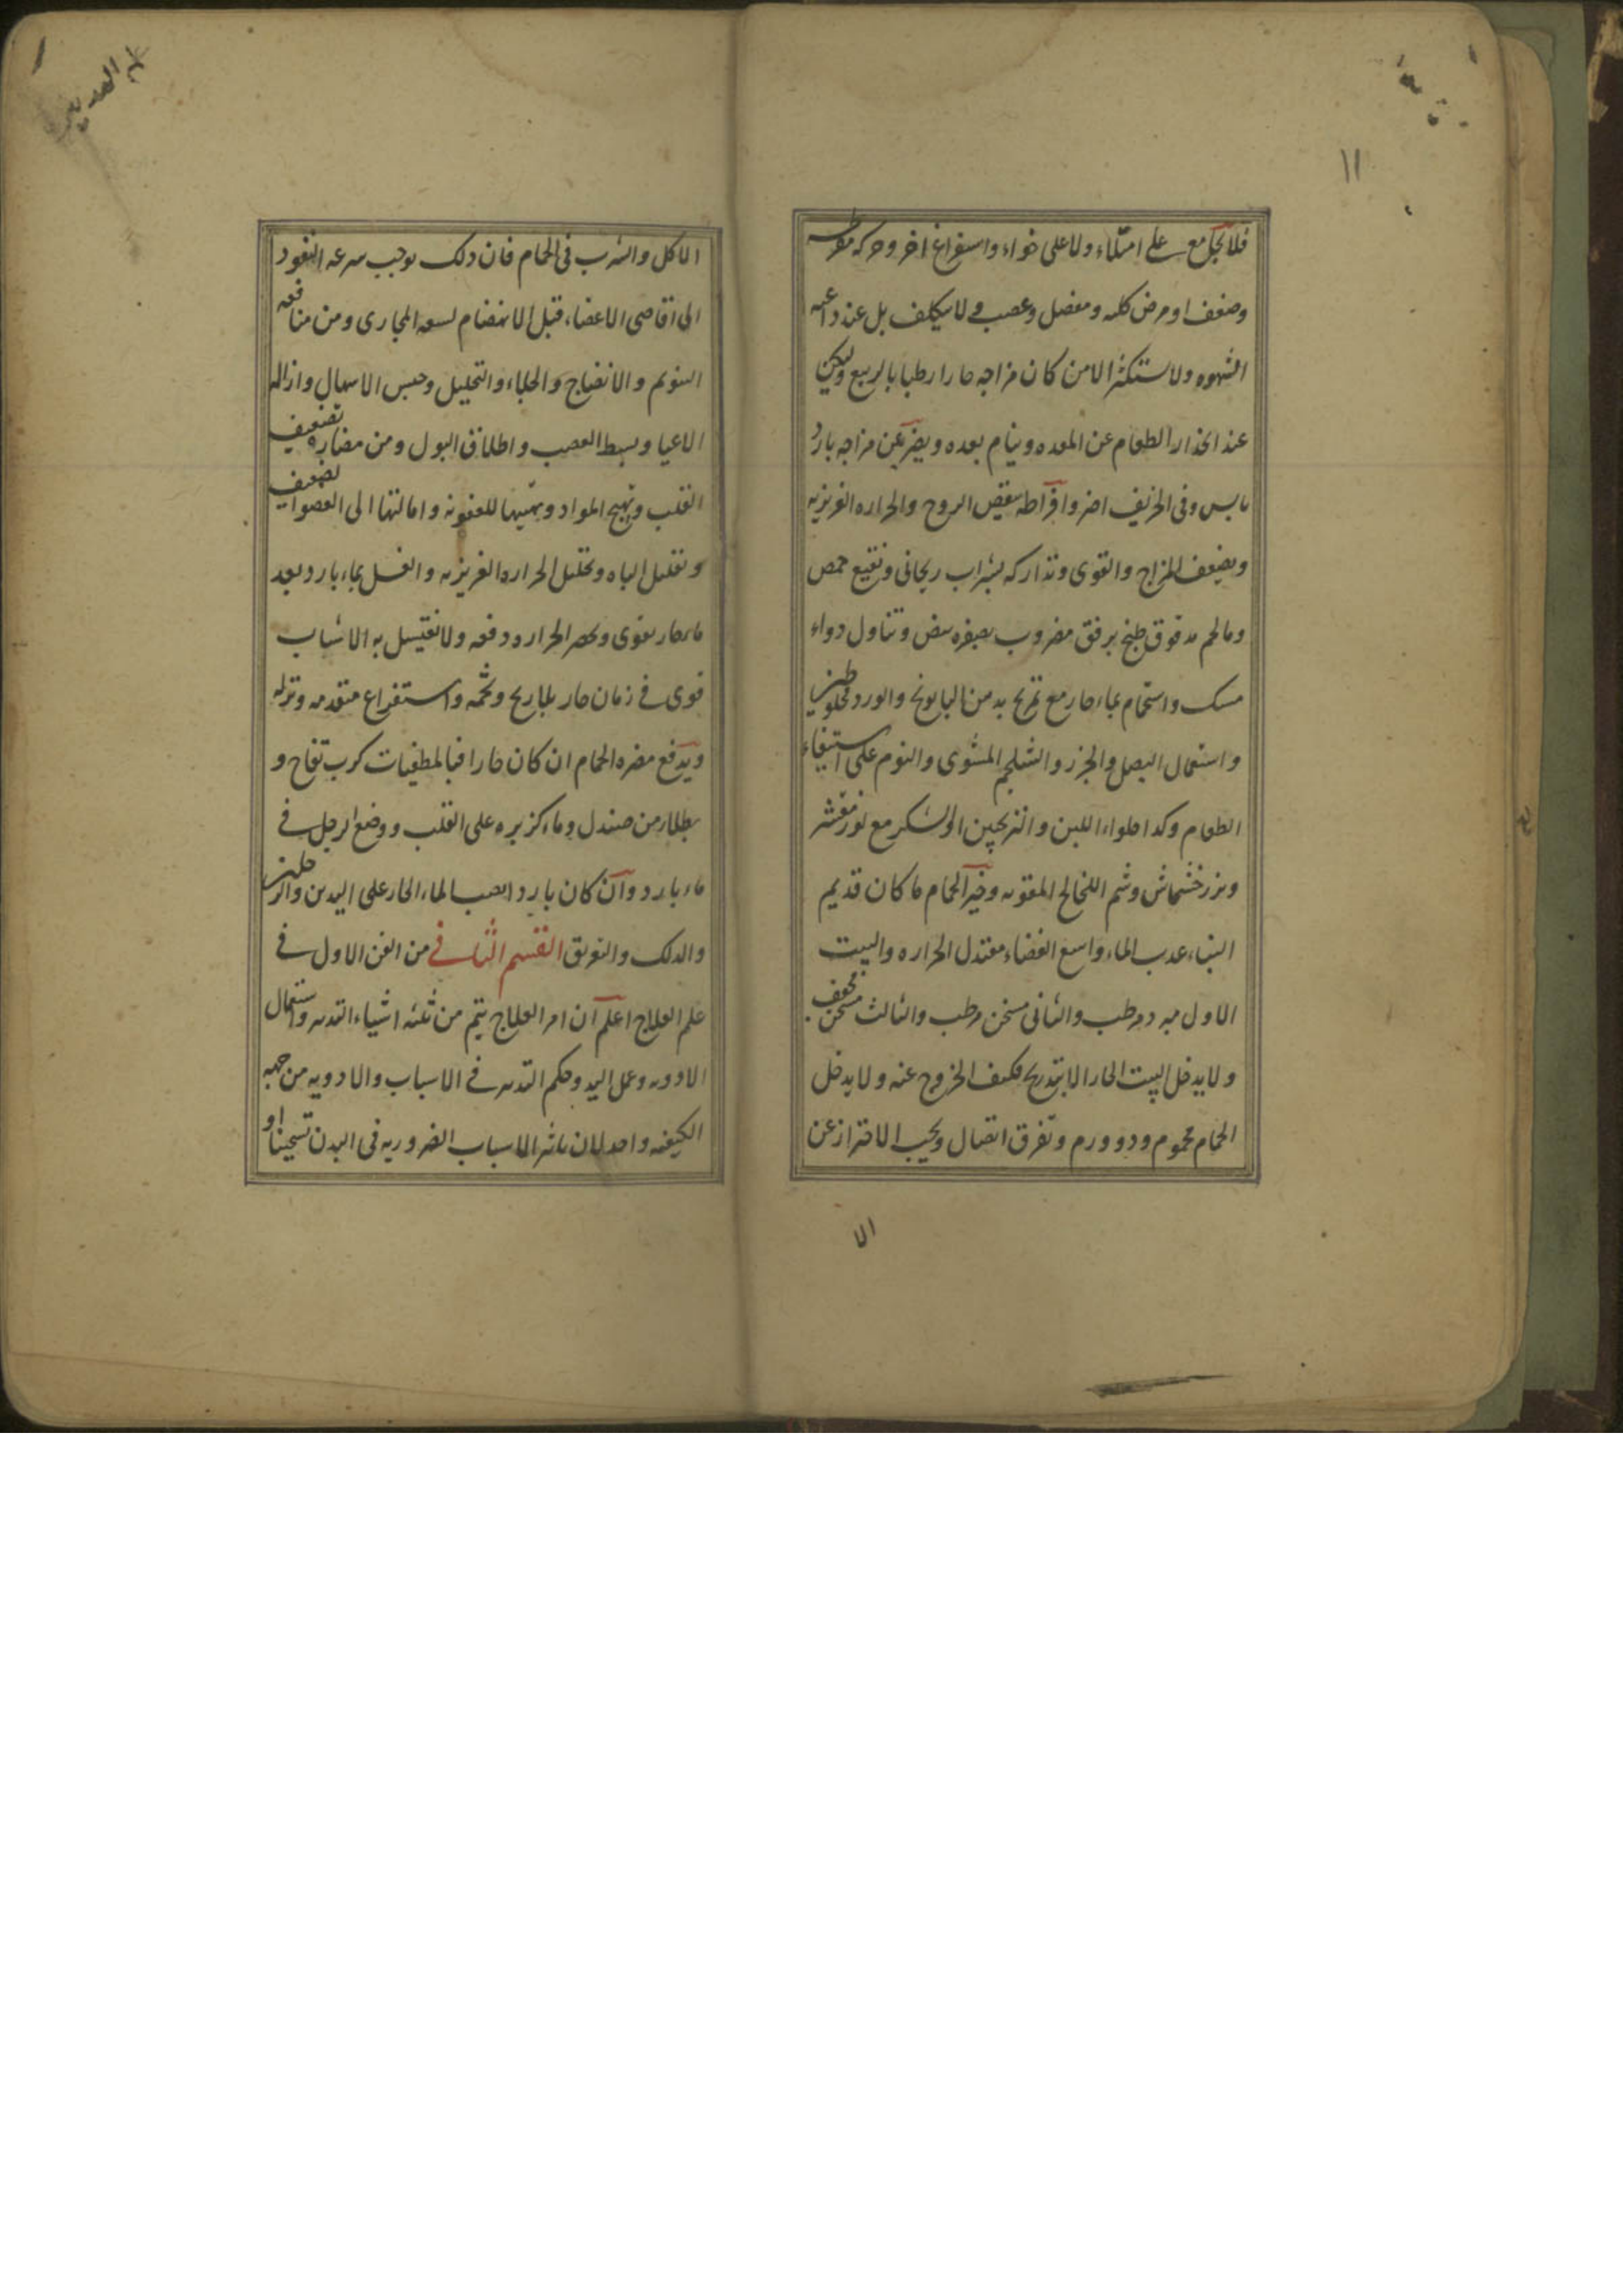 ١١
فلا يجامع على امتلاء ولا على خواء واستفراغ اخر وحركه مفرطه
وضعف او مرض كليه ومفصل وعصب ولا يتكلف بل عند داعيه
الشهوه ولا يستكثر الا من كان مزاجه حارا رطبا بالربيع وليكن
عند انحدار الطعام عن المعده وينام بعده ويضر بمن مزاجه بارد
يابس وفى الخريف اضر وافراطه ينقص الروح والحراره الغريزيه
ويضعف المزاج والقوى وتداركه بشراب ريحانى ونقيع حمص
وما لحم مدقوق طبخ برفق مضروب بصفره بيض وتناول دواء
مسك واستحمام بماء حار مع تمريخ بدهن البابونج والورد مخلوطين
واستعمال البصل والجزر والشلجم المشوى والنوم على استيفاء
الطعام وكذا حلواء اللبن والترنجبين او السكر مع لوز مقشر
وبزر خشخاش وشم اللخالخ المقويه وخير الحمام ما كان قديم
البناء عذب الماء واسع الفضاء معتدل الحراره والبيت
الاول مبرد مرطب والثانى مسخن مرطب والثالث مسخن مجفف
ولا يدخل البيت الحار الا بتدريج فكيف الخروج عنه ولا يدخل
الحمام محموم وذو ورم وتفرق اتصال ويجب الاحتراز عن
الا
الاكل والشرب فى الحمام فان ذلك يوجب سرعه النفوذ
الى اقاصى الاعضاء قبل الانهضام لسعه المجارى ومن منافعه
التنويم والانضاج والجلاء والتحليل وحبس الاسهال وازاله
الاعيا وبسط العصب واطلاق البول ومن مضاره تضعيف
القلب وتهيج المواد وتهيئها للعفونه وامالتها الى العضو الضعيف
وتقليل الباه وتحليل الحراره الغريزيه والغسل بماء بارد بعد
ماء حار يقوى ويحصر الحراره دفعه ولا يغتسل به الا شباب
قوى فى زمان حار بلا ريح وتخمه واستفراغ متقدمه ونزله
ويدفع مضره الحمام ان كان حارا فبالمطفيات كرب تفاح و
بطلاء من صندل وماء كزبره على القلب ووضع الرجل فى
ماء بارد وان كان باردا بصب الماء الحار على اليدين والرجلين
والدلك والتعريق القسم الثانى من الفن الاول فى
علم العلاج اعلم ان امر العلاج يتم من ثلثه اشياء التدبير واستعمال
الادويه وعمل اليد وحكم التدبير فى الاسباب والادويه من جهه
الكيفيه واحد لان تاثير الاسباب الضروريه فى البدن تسخينا او